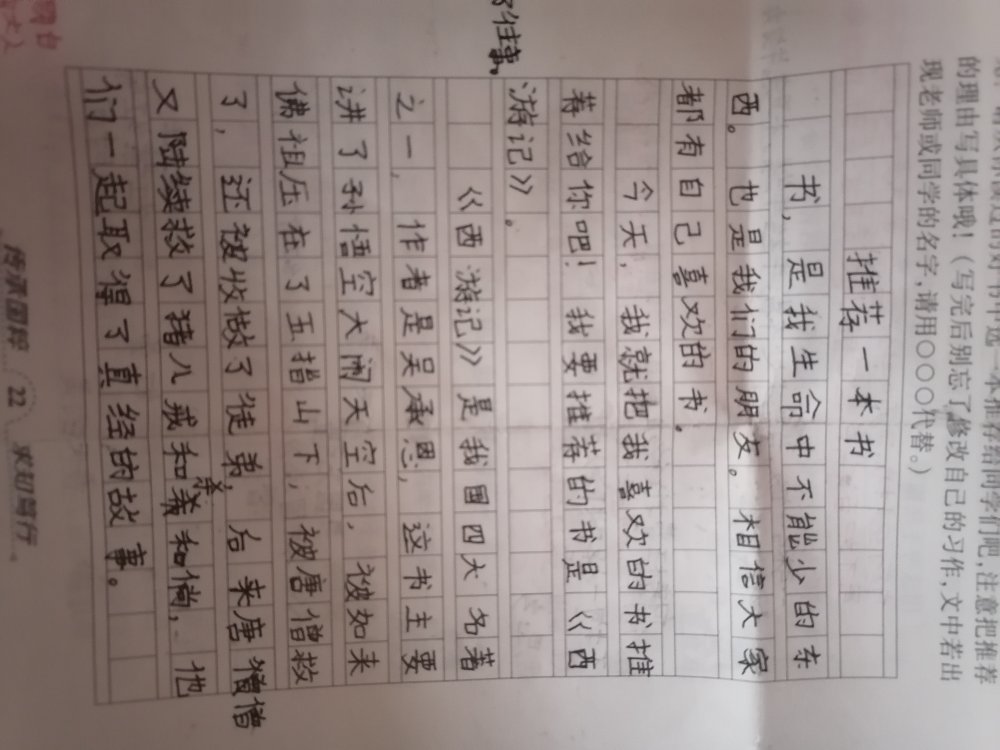 的理由写具体哦！（写完后别忘了修改自己的习作，文中若出
现老师或同学的名字，请用〇〇〇代替。）
推荐一本书
书，是我生命中不能少的东
西。也是我们的朋友。相信大家
都有自己喜欢的书。
今天，我就把我喜欢的书推
荐给你吧！我要推荐的书是《西
游记》。
《西游记》是我国四大名著
之一，作者是吴承恩，这书主要
讲了孙悟空大闹天空后，被如来
佛祖压在了五指山下，被唐僧救
了，还被收做了徒弟，后来唐僧
又陆续救了猪八戒和沙和尚，他
们一起取得了真经的故事。
传承国粹 22 求知笃行